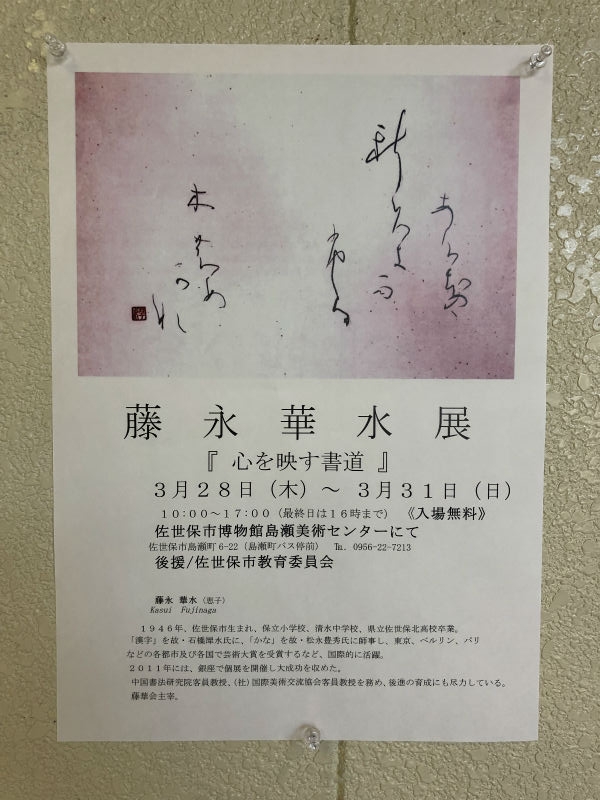 藤永華水展
『 心を映す書道 』
３月２８日（木）～ ３月３１日（日）
１０:００～１７:００（最終日は１６時まで） 《入場無料》
佐世保市博物館島瀬美術センターにて
佐世保市島瀬町 6-22（島瀬町バス停前） ℡. 0956-22-7213
後援/佐世保市教育委員会
藤永 華水（恵子）
Kasui Fujinaga
１９４６年、佐世保市生まれ、保立小学校、清水中学校、県立佐世保北高校卒業。
「漢字」を故・石橋犀水氏に、「かな」を故・松永豊秀氏に師事し、東京、ベルリン、パリ
などの各都市及び各国で芸術大賞を受賞するなど、国際的に活躍。
２０１１年には、銀座で個展を開催し大成功を収めた。
中国書法研究院客員教授、(社)国際美術交流協会客員教授を務め、後進の育成にも尽力している。
藤華会主宰。